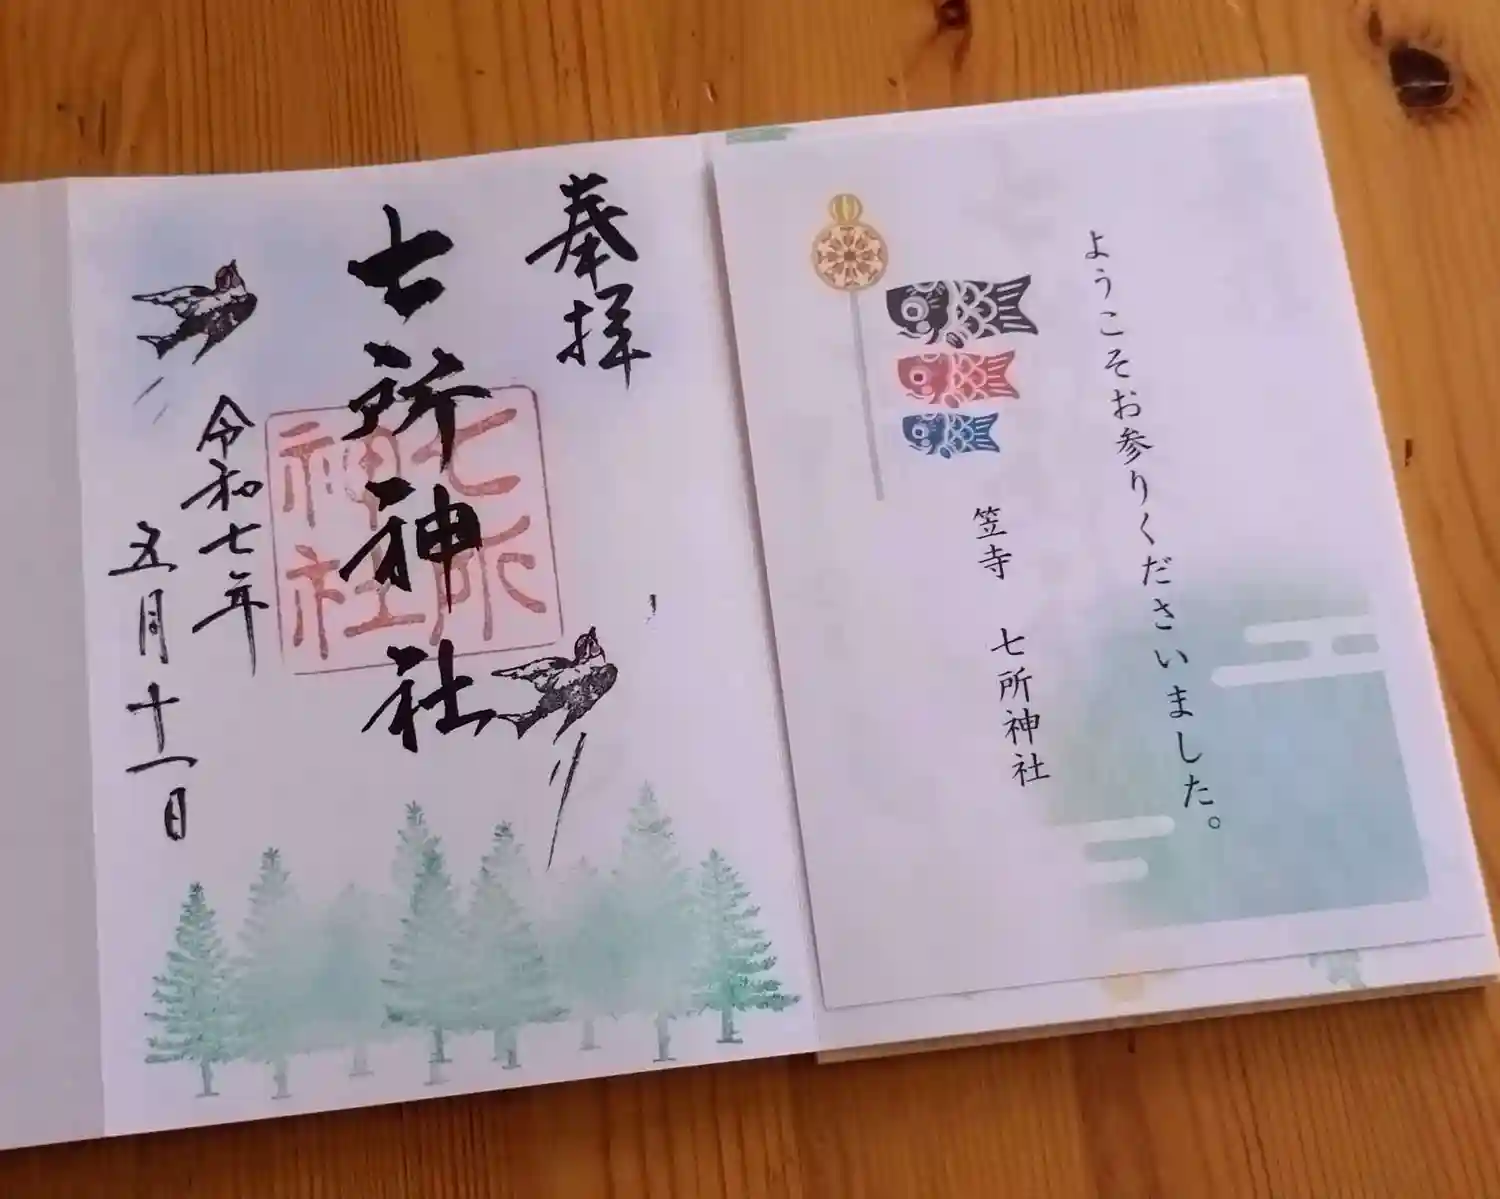 ようこそお参りくださいました。
笠寺 七所神社
奉拝
七所神社
七所
神社
令和七年
五月十一日